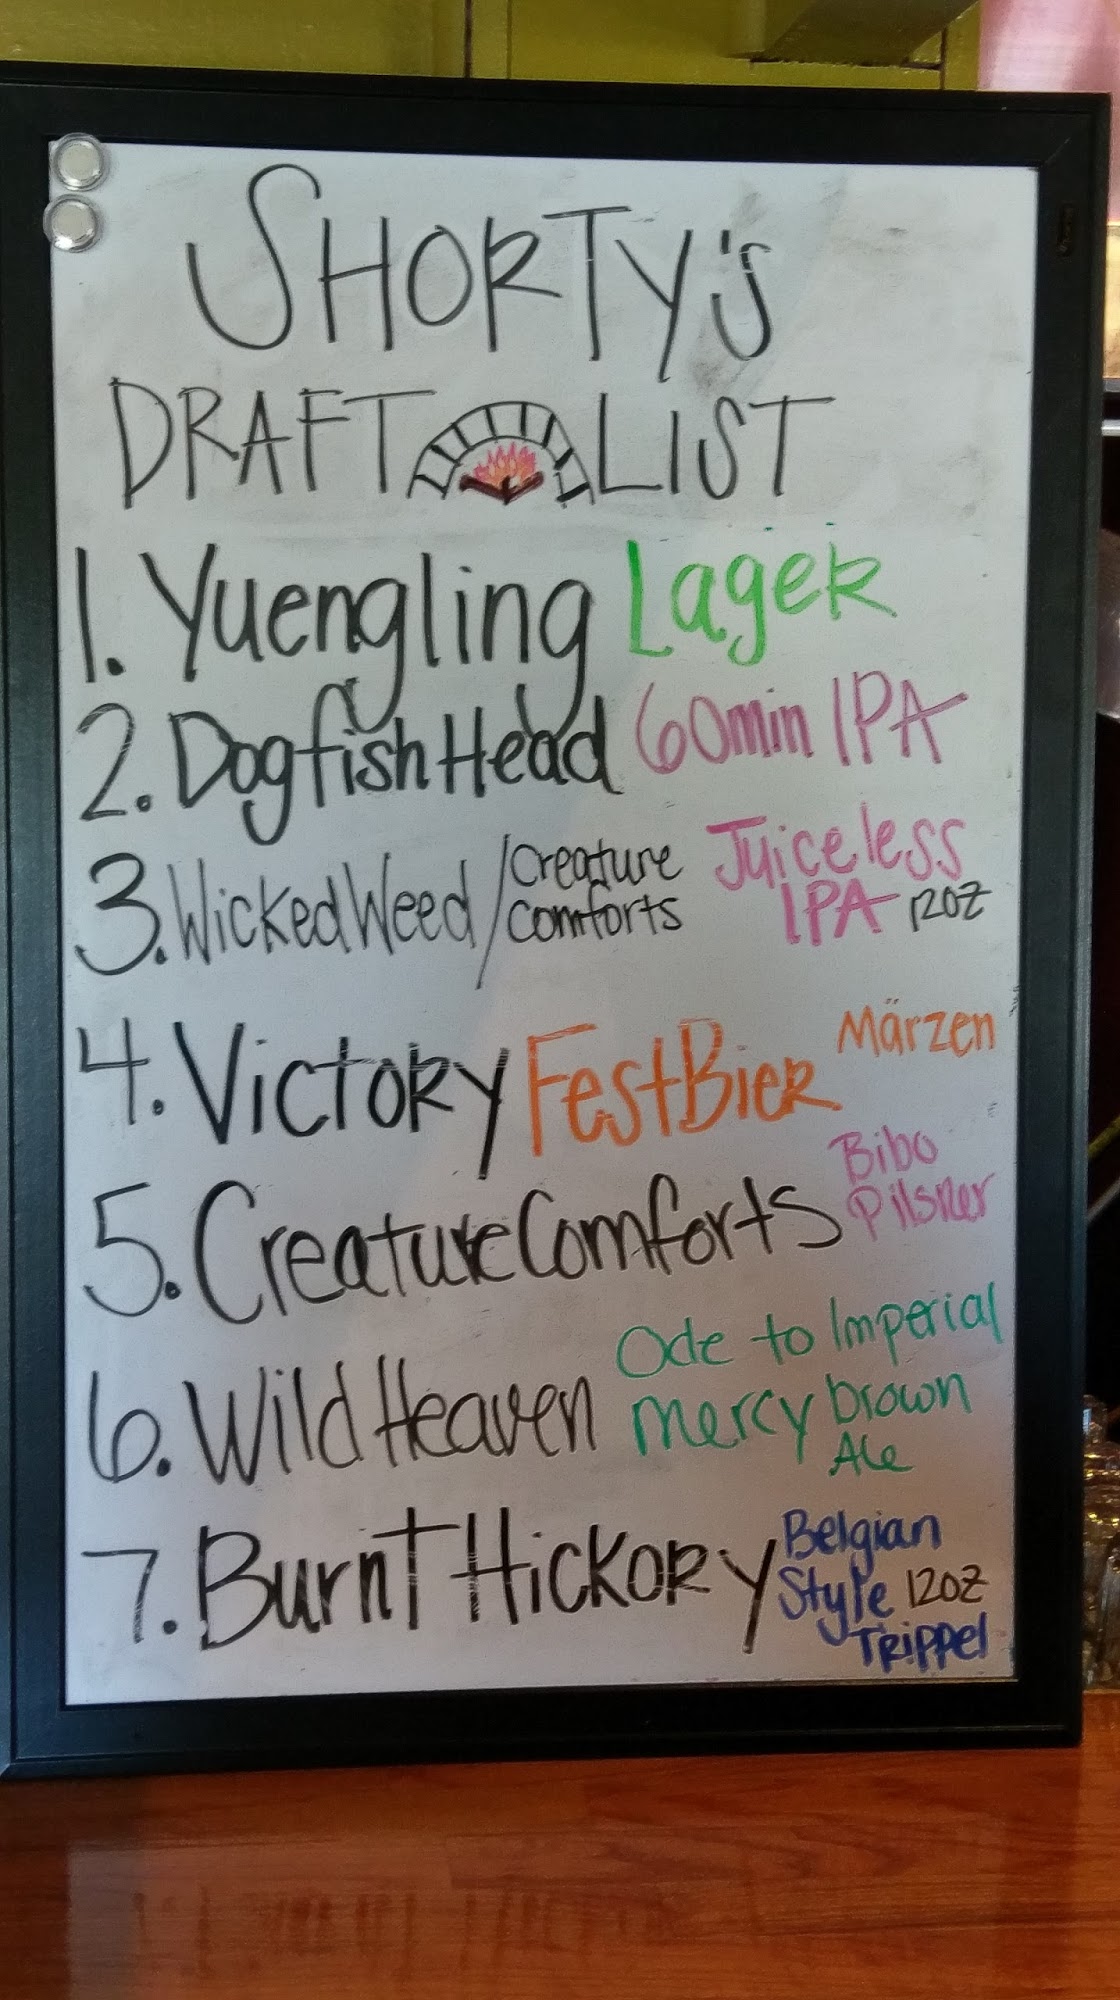 SHORTY'S
DRAFT LIST
1. Yuengling Lager
2. Dogfish Head 60min IPA
3. Wicked Weed / Creature Comforts Juiceless IPA 12oz
4. Victory FestBier Märzen
5. Creature Comforts Bibo Pilsner
6. Wild Heaven Ode to Mercy Imperial brown Ale
7. Burnt Hickory Belgian Style Trippel 12oz